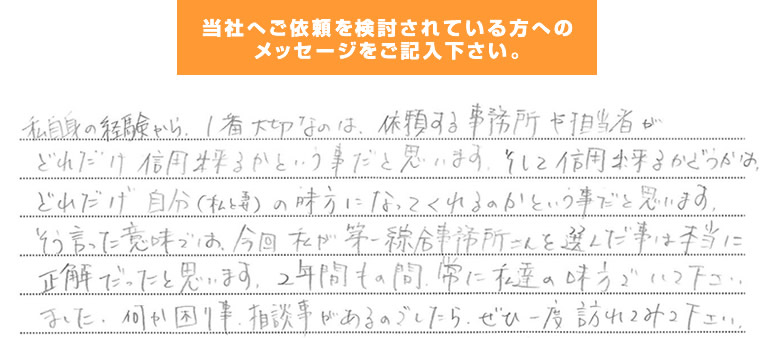 当社へご依頼を検討されている方への
メッセージをご記入下さい。
私自身の経験から、1番大切なのは、依頼する事務所や担当者が
どれだけ信用出来るかという事だと思います。そして信用出来るかどうかは、
どれだけ自分(私と妻)の味方になってくれるのかという事だと思います。
そう言った意味では、今回私が第一綜合事務所さんを選んだ事は本当に
正解だったと思います。2年間もの間、常に私達の味方でいて下さい
ました。何か困り事、相談事があるのでしたら、ぜひ一度訪れてみて下さい。